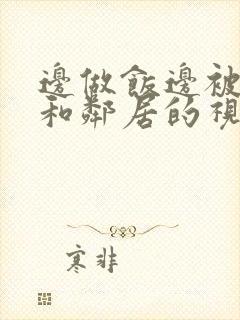 邊做飯邊被
和鄰居的視
寒非